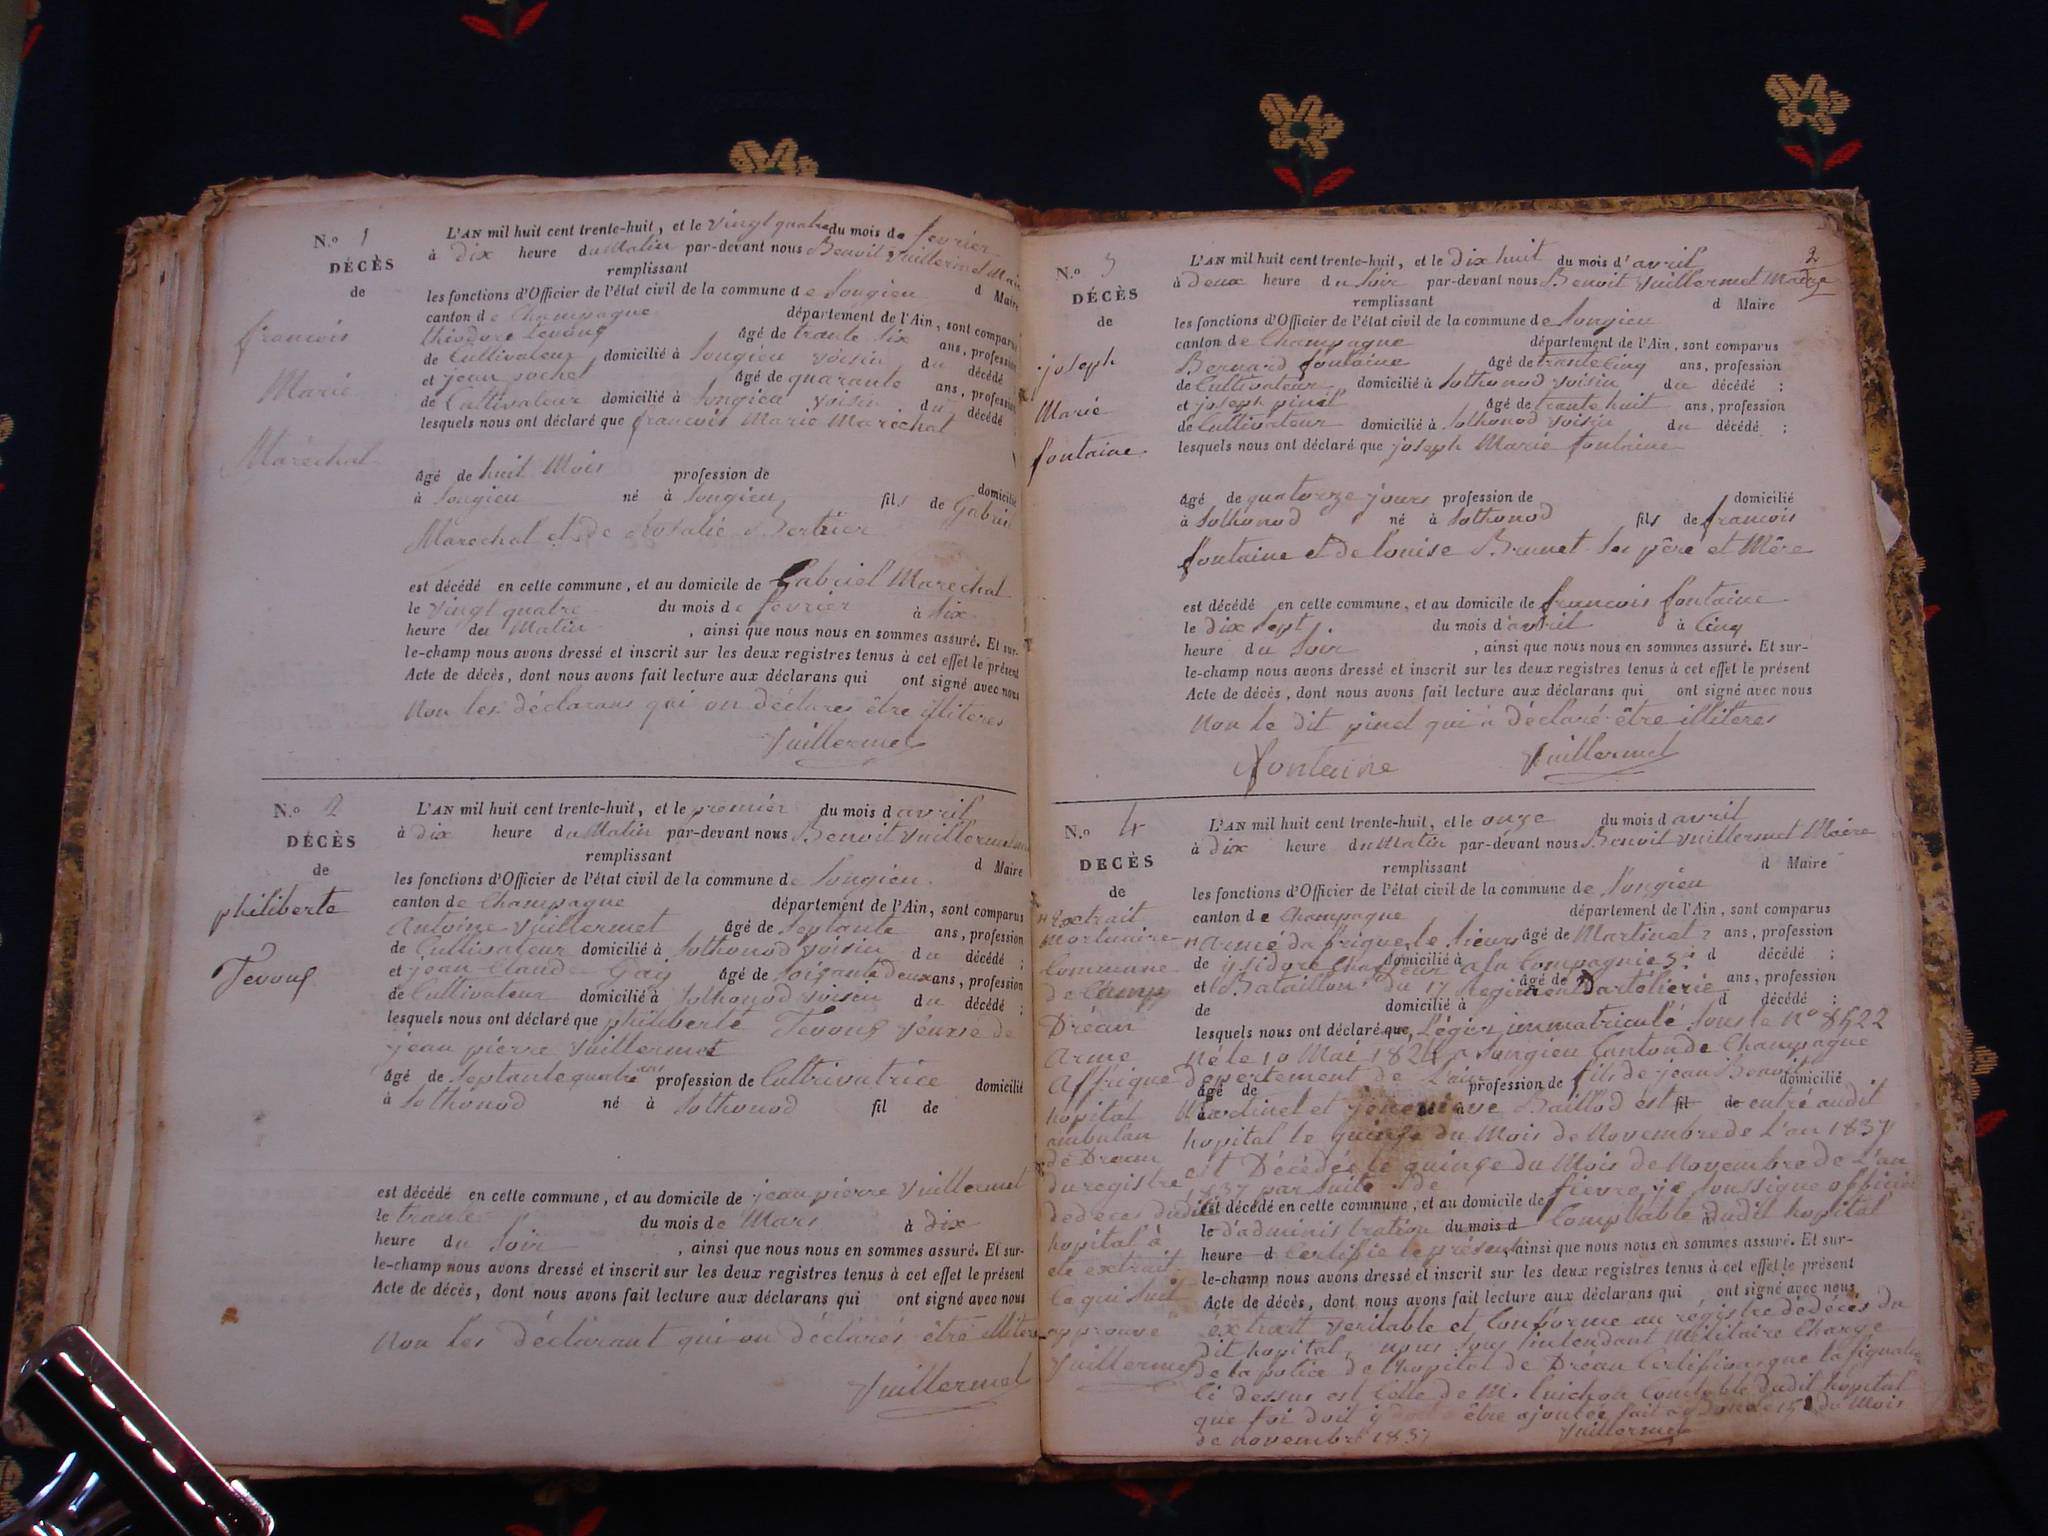 N.o 1
DÉCÈS
de
francois
Marie
Maréchal
L'AN mil huit cent trente-huit, et le vingt quatre du mois de fevrier
à dix heure du Matin par-devant nous Benoit Vuillermet Maire
remplissant d Maire
les fonctions d'Officier de l'état civil de la commune de Songieu
canton de Champagne département de l'Ain, sont comparus
théodore tevouq âgé de trante six ans, profession
de Cultivateur domicilié à Songieu voisin du décédé ;
et jean pochet âgé de quarante ans, profession
de Cultivateur domicilié à Songieu voisin du décédé ;
lesquels nous ont déclaré que francois Marie Marechal
âgé de huit Mois profession de domicilié
à Songieu né à Songieu fils de Gabriel
Marechal et de Rosalie Bertier
est décédé en cette commune, et au domicile de Gabriel Marechal
le vingt quatre du mois de fevrier à dix
heure du Matin , ainsi que nous nous en sommes assuré. Et sur-
le-champ nous avons dressé et inscrit sur les deux registres tenus à cet effet le présent
Acte de décès, dont nous avons fait lecture aux déclarans qui ont signé avec nous
Non les déclarans qui on déclares être illiteres
Vuillermet
N.o 2
DÉCÈS
de
philiberte
Tevouq
L'AN mil huit cent trente-huit, et le premier du mois d avril
à dix heure du Matin par-devant nous Benoit Vuillermet
remplissant d Maire
les fonctions d'Officier de l'état civil de la commune de Songieu
canton de Champagne département de l'Ain, sont comparus
Antoine Vuillermet âgé de Septante ans, profession
de Cultivateur domicilié à Sothonod voisin du décédé ;
et jean Claude Gay âgé de Soisante deux ans, profession
de Cultivateur domicilié à Sothonod voisin du décédé ;
lesquels nous ont déclaré que philiberte Tevouq veuve de
jean pierre Vuillermet
âgé de Septante quatre ans profession de Cultivatrice domicilié
à Sothonod né à Sothonod fil de
est décédé en cette commune, et au domicile de jean pierre Vuillermet
le trante du mois de Mars à dix
heure du Soir , ainsi que nous nous en sommes assuré. Et sur-
le-champ nous avons dressé et inscrit sur les deux registres tenus à cet effet le présent
Acte de décès, dont nous avons fait lecture aux déclarans qui ont signé avec nous
Non les déclarant qui on déclarés être illitere
Vuillermet
2
N.o 3
DÉCÈS
de
joseph
Marie
fontaine
L'AN mil huit cent trente-huit, et le dix huit du mois d'avril
à deux heure du Soir par-devant nous Benoit Vuillermet Maire
remplissant d Maire
les fonctions d'Officier de l'état civil de la commune de Songieu
canton de Champagne département de l'Ain, sont comparus
Bernard fontaine âgé de trante Cinq ans, profession
de Cultivateur domicilié à Sothonod voisin du décédé ;
et joseph pinet âgé de trante huit ans, profession
de Cultivateur domicilié à Sothonod voisin du décédé ;
lesquels nous ont déclaré que joseph Marie fontaine
âgé de quatorze jours profession de domicilié
à Sothonod né à Sothonod fils de francois
fontaine et de Louise Brunet Ses père et Mère
est décédé en cette commune, et au domicile de francois fontaine
le dix sept du mois d'avril à Cinq
heure du Soir , ainsi que nous nous en sommes assuré. Et sur-
le-champ nous avons dressé et inscrit sur les deux registres tenus à cet effet le présent
Acte de décès, dont nous avons fait lecture aux déclarans qui ont signé avec nous
Non le dit pinet qui a déclaré être illiteres
fontaine Vuillermet
N.o 4
DECÈS
de
Extrait
Mortuaire
Commune
de Camp
Dréan
Arme
Affrique
hopital
ambulan
de Drean
du registre
de deces dudit
hopital à
ete extrait
ce qui suit
approuve
Vuillermet
L'AN mil huit cent trente-huit, et le onze du mois d avril
à dix heure du Matin par-dévant nous Benoit Vuillermet Maire
remplissant d Maire
les fonctions d'Officier de l'état civil de la commune de Songieu
canton de Champagne département de l'Ain, sont comparus
Armé dafrique, le Sieur âgé de Martinet ans, profession
de ysidore Chasseur domicilié à a la Compagnie d décédé ;
et Bataillon du 17 Regiment âgé de Dartelierie ans, profession
de domicilié à d décédé ;
lesquels nous ont déclaré que, Léger, immatriculé Sous le No 8522
Né le 10 Mai 1824 a Songieu Canton de Champagne
département de L'ain fils de jean Benoit
âgé de profession de domicilié
Martinet et jeneviève Baillod est fil de entré audit
hopital le quinze du Mois de Novembre de L'an 1837
est Décédée le quinze du Mois de Novembre de L'an
1837 par Suite de fievre je Soussigne officier
est décédé en cette commune, et au domicile de
le d'administration du mois d Comptable à dudit hopital
heure d Certifie le présent ainsi que nous nous en sommes assuré. Et sur-
le-champ nous avons dressé et inscrit sur les deux registres tenus à cet effet le présent
Acte de décès, dont nous avons fait lecture aux déclarans qui ont signé avec nous
éxtrait veritable et Conforme au régistre de décés du
dit hopital, nous Sous intendant Militaire Charge
de la police de l'hopital de Dréan Certifions que la signature
Ci dessus est Celle de M. Cuichon Comptable dudit hopital
que foi doit y être ajoutée fait a Drean le 15 du Mois
de novembre 1837 Vuillermet